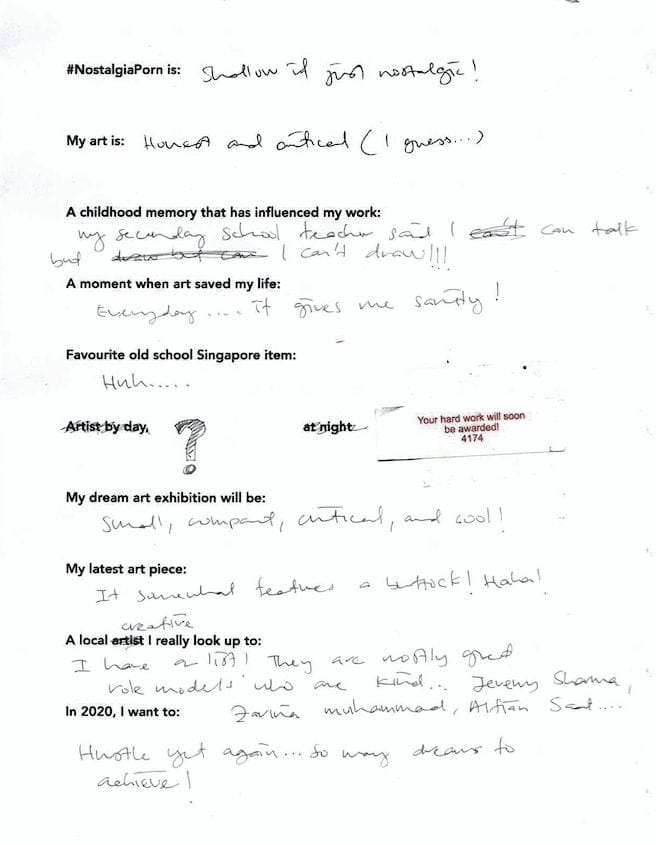 #NostalgiaPorn is: Shallow if just nostalgic!
My art is: Honest and critical (I guess...)
A childhood memory that has influenced my work:
my secondary school teacher said I can't can talk
but draw but can I can't draw!!!
A moment when art saved my life:
Everyday .... it gives me sanity!
Favourite old school Singapore item:
Huh.....
Artist by day, ? at night
Your hard work will soon
be awarded!
4174
My dream art exhibition will be:
Small, compact, critical, and cool!
My latest art piece:
It somewhat features a buttock! Haha!
creative
A local artist I really look up to:
I have a list! They are mostly great
role models who are kind... Jeremy Sharma,
In 2020, I want to: Zarina muhammad, Alfian Saat....
Hustle yet again... So many dreams to
achieve!